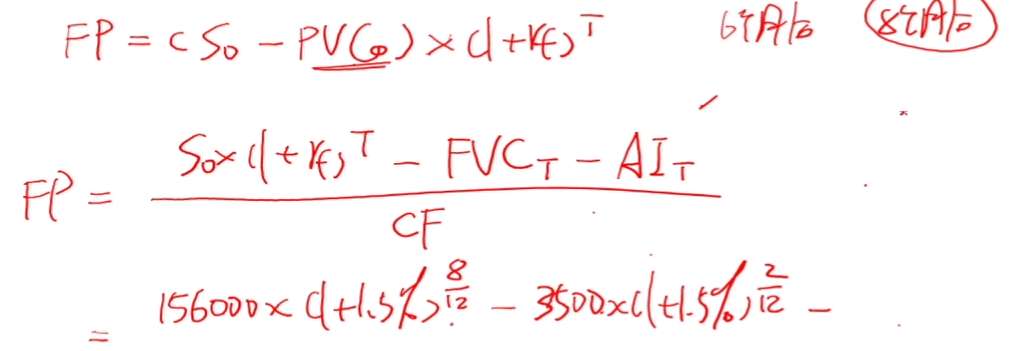 FP = (S₀ - PVC₀) × (1+rf)^T 6个月后 8个月后
S₀×(1+rf)^T - FVC_T - AI_T
FP =
CF
= 156000×(1+1.5%)^{8/12} - 3500×(1+1.5%)^{2/12} -